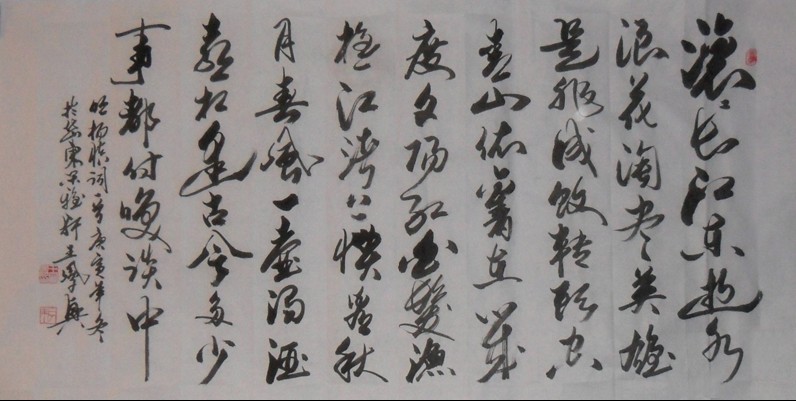 滚滚长江东逝水
浪花淘尽英雄
是非成败转头空
青山依舊在几
度夕阳红白髮渔
樵江渚上惯看秋
月春风一壶浊酒
喜相逢古今多少
事都付笑谈中
明杨慎词一首庚寅年冬
雅轩王凤兴